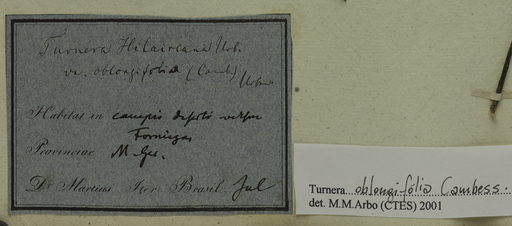 Turnera Hilaireana Urb.
va. oblongifolia (Camb.)
Urban
Habitat in campis deserti versus
Formigas
Provinciae M. Ger.
Dr. Martius Iter Brasil. Jul
Turnera oblongifolia Cambess.
det. M.M.Arbo (CTES) 2001